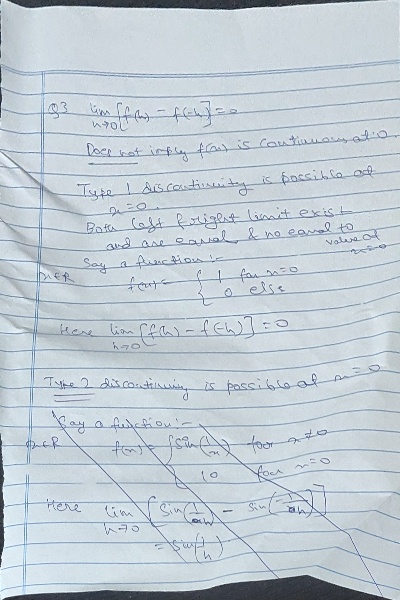 Q3 lim h→0 [f(h) - f(-h)] = 0
Does not imply f(x) is continuous at 0.
Type 1 discontinuity is possible at
x=0.
Both left & right limit exist
and are equal & no equal to
value at x=0
Say a function :-
x∈R f(x) = { 1 for x=0
0 else
Here lim h→0 [f(h) - f(-h)] = 0
Type 2 discontinuity is possible at x=0
Say a function :-
x∈R f(x) = { Sin(1/x) for x≠0
10 for x=0
Here lim h→0 [Sin(1/h) - sin(-1/h)]
= Sin(1/h)